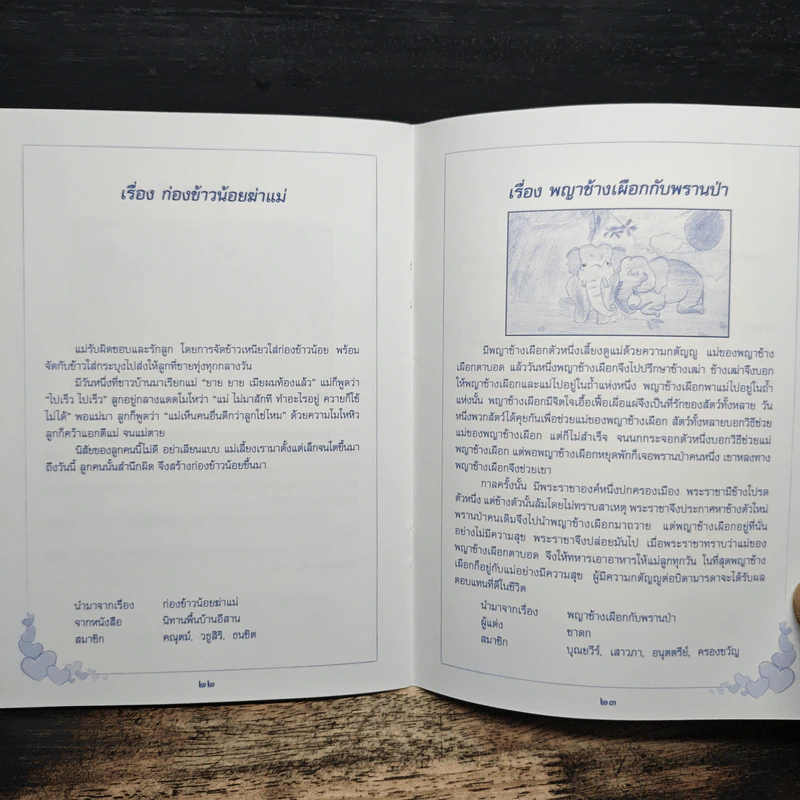 เรื่อง ก่องข้าวน้อยฆ่าแม่
แม่รับผิดชอบและรักลูก โดยการจัดข้าวเหนียวใส่ก่องข้าวน้อย พร้อม
จัดกับข้าวใส่กระบุงไปส่งให้ลูกที่ชายทุ่งทุกกลางวัน
มีวันหนึ่งที่ชาวบ้านมาเรียกแม่ "ยาย ยาย เมียผมท้องแล้ว" แม่ก็พูดว่า
"ไปเร็ว ไปเร็ว" ลูกอยู่กลางแดดโมโหว่า "แม่ ไม่มาสักที ทำอะไรอยู่ ควายก็ใช้
ไม่ได้" พอแม่มา ลูกก็พูดว่า "แม่เห็นคนอื่นดีกว่าลูกใช่ไหม" ด้วยความโมโหหิว
ลูกก็คว้าแอกตีแม่ จนแม่ตาย
นิสัยของลูกคนนี้ไม่ดี อย่าเลียนแบบ แม่เลี้ยงเรามาตั้งแต่เล็กจนโตขึ้นมา
ถึงวันนี้ ลูกคนนั้นสำนึกผิด จึงสร้างก่องข้าวน้อยขึ้นมา
นำมาจากเรื่อง ก่องข้าวน้อยฆ่าแม่
จากหนังสือ นิทานพื้นบ้านอีสาน
สมาชิก คณุตม์, วฐูสิริ, ธนชิต
๒๒
เรื่อง พญาช้างเผือกกับพรานป่า
มีพญาช้างเผือกตัวหนึ่งเลี้ยงดูแม่ด้วยความกตัญญู แม่ของพญาช้าง
เผือกตาบอด แล้ววันหนึ่งพญาช้างเผือกจึงไปปรึกษาช้างเฒ่า ช้างเฒ่าจึงบอก
ให้พญาช้างเผือกและแม่ไปอยู่ในถ้ำแห่งหนึ่ง พญาช้างเผือกพาแม่ไปอยู่ในถ้ำ
แห่งนั้น พญาช้างเผือกมีจิตใจเอื้อเฟื้อเผื่อแผ่จึงเป็นที่รักของสัตว์ทั้งหลาย วัน
หนึ่งพวกสัตว์ได้คุยกันเพื่อช่วยแม่ของพญาช้างเผือก สัตว์ทั้งหลายบอกวิธีช่วย
แม่ของพญาช้างเผือก แต่ก็ไม่สำเร็จ จนนกกระจอกตัวหนึ่งบอกวิธีช่วยแม่
พญาช้างเผือก แต่พอพญาช้างเผือกหยุดพักก็เจอพรานป่าคนหนึ่ง เขาหลงทาง
พญาช้างเผือกจึงช่วยเขา
กาลครั้งนั้น มีพระราชาองค์หนึ่งปกครองเมือง พระราชามีช้างโปรด
ตัวหนึ่ง แต่ช้างตัวนั้นล้มโดยไม่ทราบสาเหตุ พระราชาจึงประกาศหาช้างตัวใหม่
พรานป่าคนเดิมจึงไปนำพญาช้างเผือกมาถวาย แต่พญาช้างเผือกอยู่ที่นั่น
อย่างไม่มีความสุข พระราชาจึงปล่อยมันไป เมื่อพระราชาทราบว่าแม่ของ
พญาช้างเผือกตาบอด จึงให้ทหารเอาอาหารให้แม่ลูกทุกวัน ในที่สุดพญาช้าง
เผือกก็อยู่กับแม่อย่างมีความสุข ผู้มีความกตัญญูต่อบิดามารดาจะได้รับผล
ตอบแทนที่ดีในชีวิต
นำมาจากเรื่อง พญาช้างเผือกกับพรานป่า
ผู้แต่ง ชาดก
สมาชิก บุณยวีร์, เสาวภา, อนุตตรีย์, ครองขวัญ
๒๓